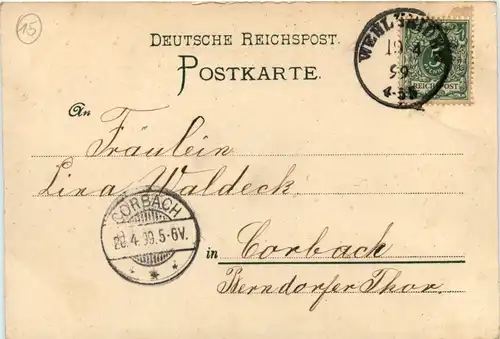 15
DEUTSCHE REICHSPOST.
POSTKARTE.
19 4
99
4-5N
5
REICHSPOST
An
Fräulein
Lina Waldeck.
CORBACH
20.4.99.5-6V.
in Corbach
Berndorfer Thor.